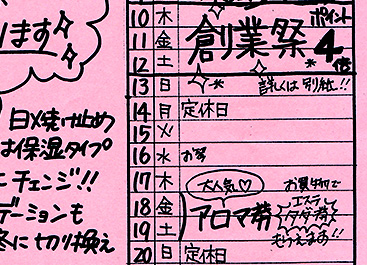 ります
日メ焼け止め
は保湿タイプ
にチェンジ!!
デーションも
冬に切り換え
10 木
11 金
12 土
創業祭
ポイント
4倍
13 日 詳しくは別紙!!
14 月 定休日
15 火
16 水 お琴
17 木
大人気♡
お買物で
18 金
アロマ券
エステ
タダ券
19 土
もらえます!!
20 日 定休日